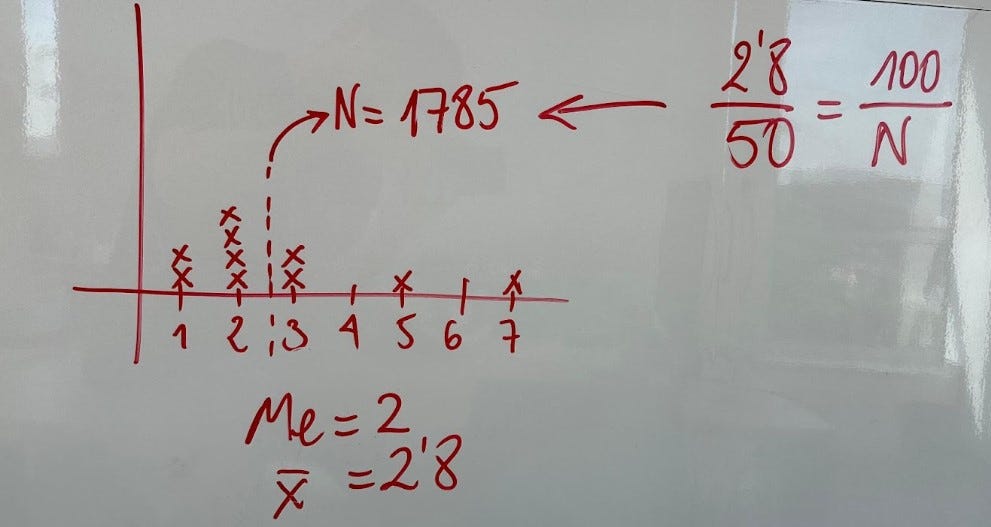 N= 1785
2'8/50 = 100/N
1 2 3 4 5 6 7
Me = 2
x̄ = 2'8